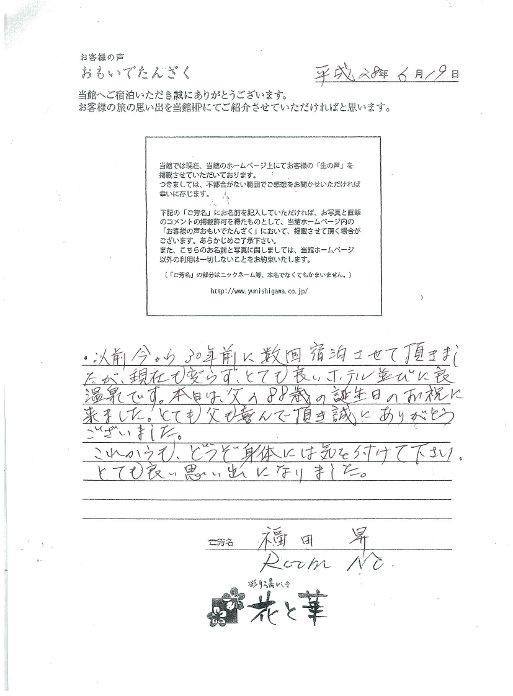 お客様の声
おもいでたんざく
平成28年6月19日
当館へご宿泊いただき誠にありがとうございます。
お客様の旅の思い出を当館HPにてご紹介させていただければと思います。
当館では現在、当館のホームページ上にてお客様の「生の声」を
掲載させていただいております。
つきましては、不都合がない範囲でご感想をお聞かせいただければ
幸いに存じます。
下記の「ご芳名」にお名前を記入していただければ、お写真と直筆
のコメントの掲載許可を得たものとして、当館ホームページ内の
「お客様の声おもいでたんざく」において、掲載させて頂く場合が
ございます。あらかじめご了承下さい。
また、こちらのお名前と写真に関しましては、当館ホームページ
以外の利用は一切しないことをお約束いたします。
(「ご芳名」の部分はニックネーム等、本名でなくてもかまいません。)
http://www.yunishigawa.co.jp/
・以前今から30年前に数回宿泊させて頂きまし
たが、現在も変らず、とても良いホテル並びに良
温泉です。本日は父の88歳の誕生日のお祝に
来ました!とても父も喜んで頂き誠にありがとう
ございました。
これからも、どうぞ身体には気を付けて下さい。
とても良い思い出になりました。
ご芳名 福田 昇
Room No.
花と華